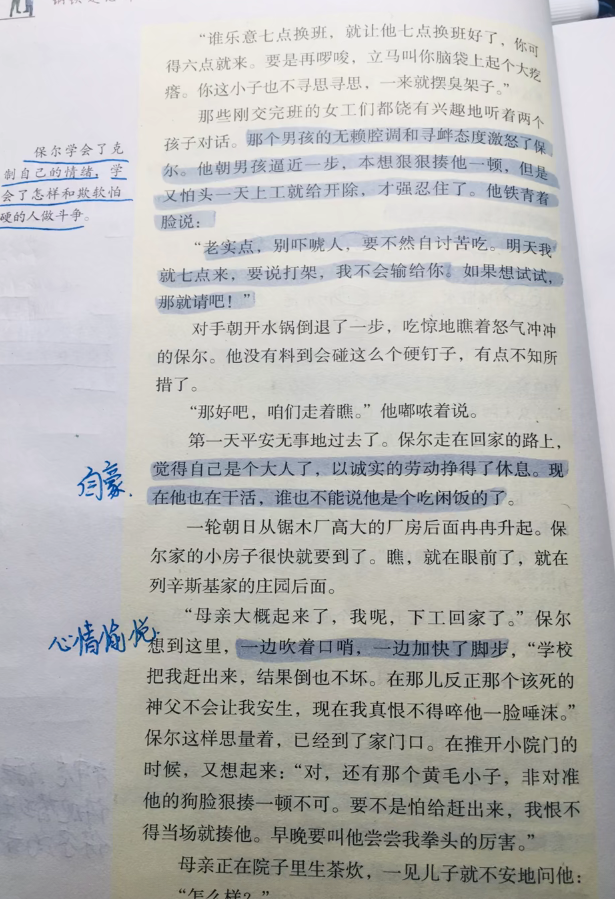 “谁乐意七点换班，就让他七点换班好了，你可
得六点就来。要是再啰唆，立马叫你脑袋上起个大疙
瘩。你这小子也不寻思寻思，一来就摆臭架子。”
那些刚交完班的女工们都饶有兴趣地听着两个
孩子对话。那个男孩的无赖腔调和寻衅态度激怒了保
尔。他朝男孩逼近一步，本想狠狠揍他一顿，但是
又怕头一天上工就给开除，才强忍住了。他铁青着
脸说：
“老实点，别吓唬人，要不然自讨苦吃。明天我
就七点来，要说打架，我不会输给你。如果想试试，
那就请吧！”
对手朝开水锅倒退了一步，吃惊地瞧着怒气冲冲
的保尔。他没有料到会碰这么个硬钉子，有点不知所
措了。
“那好吧，咱们走着瞧。”他嘟哝着说。
第一天平安无事地过去了。保尔走在回家的路上，
觉得自己是个大人了，以诚实的劳动挣得了休息。现
在他也在干活，谁也不能说他是个吃闲饭的了。
一轮朝日从锯木厂高大的厂房后面冉冉升起。保
尔家的小房子很快就要到了。瞧，就在眼前了，就在
列辛斯基家的庄园后面。
“母亲大概起来了，我呢，下工回家了。”保尔
想到这里，一边吹着口哨，一边加快了脚步，“学校
把我赶出来，结果倒也不坏。在那儿反正那个该死的
神父不会让我安生，现在我真恨不得啐他一脸唾沫。”
保尔这样思量着，已经到了家门口。在推开小院门的
时候，又想起来：“对，还有那个黄毛小子，非对准
他的狗脸狠揍一顿不可。要不是怕给赶出来，我恨不
得当场就揍他。早晚要叫他尝尝我拳头的厉害。”
母亲正在院子里生茶炊，一见儿子就不安地问他：
“怎么样？”
保尔学会了克
制自己的情绪，学
会了怎样和欺软怕
硬的人做斗争。
自豪.
心情愉悦.